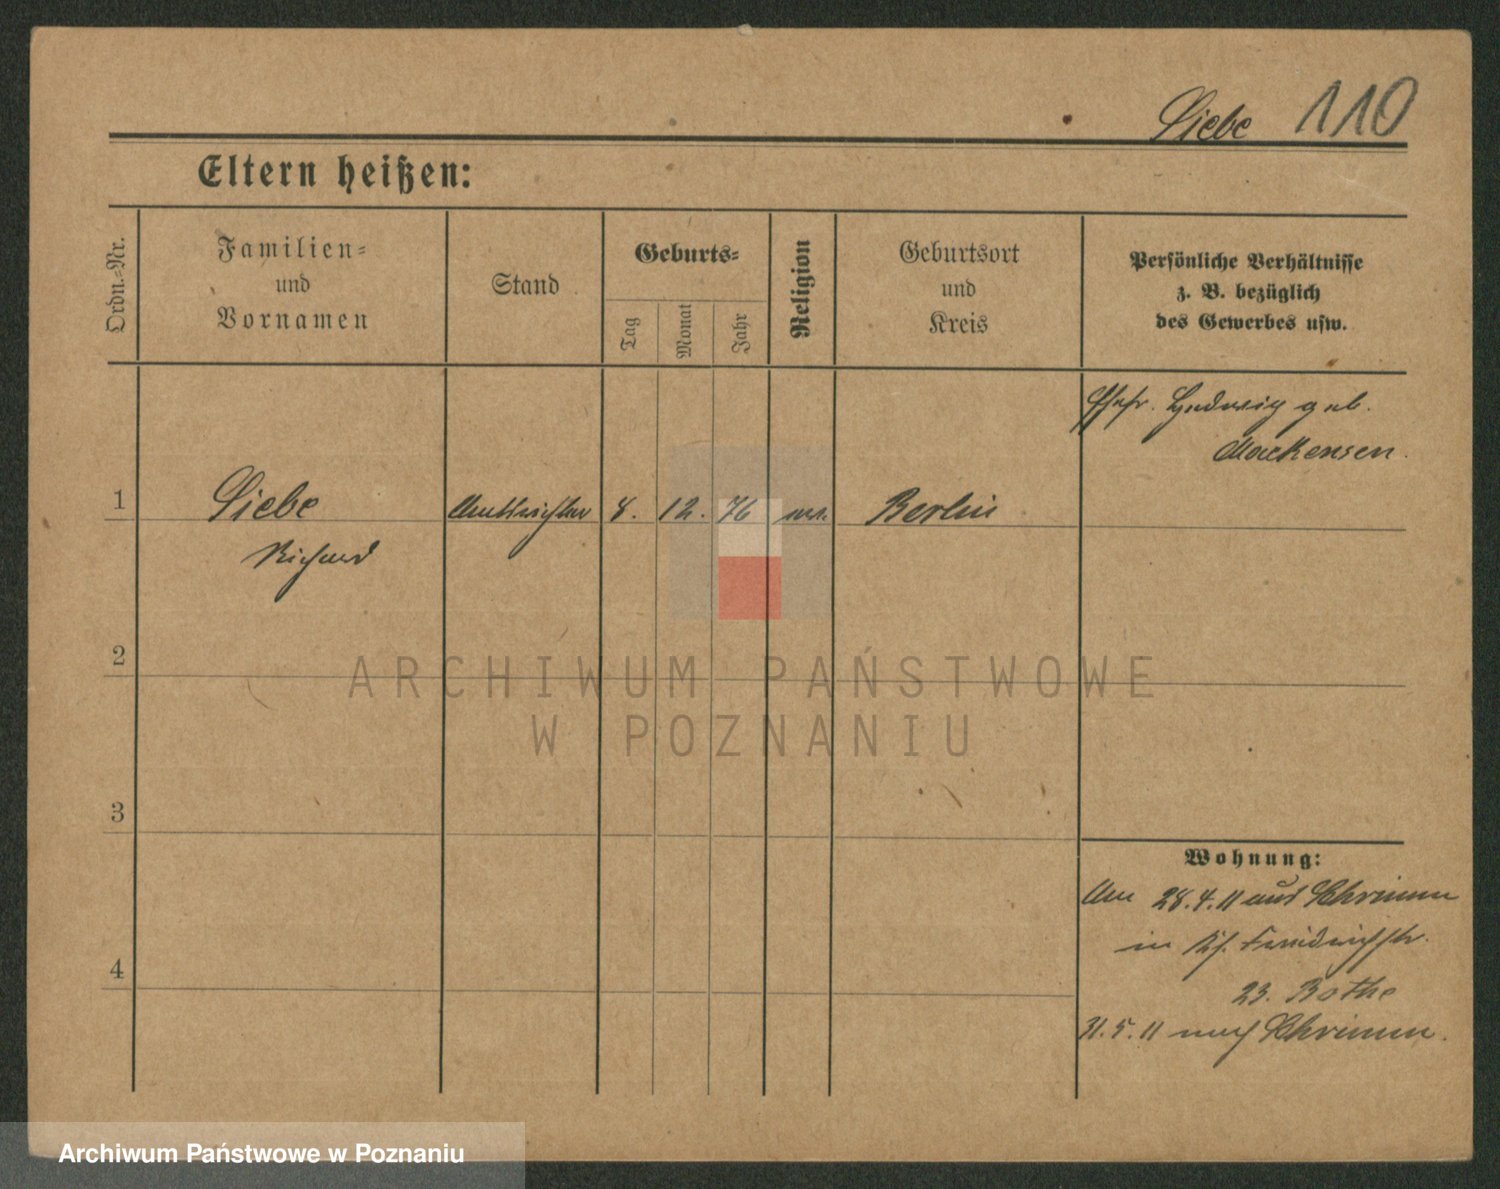 Siebe 110
Eltern heißen:
Ordn.-Nr.
Familien-
und
Vornamen
Stand
Geburts-
Tag
Monat
Jahr
Religion
Geburtsort
und
Kreis
Persönliche Verhältnisse
z. B. bezüglich
des Gewerbes usw.
Ehefr. Hedwig geb.
Mackensen.
1 Siebe Amtsrichter 8. 12. 76 ev. Berlin
Richard
2
3
4
Wohnung:
Am 28.4.11 aus Schrimm
in Friedrichstr.
23. Bothe
31.5.11 nach Schrimm.
ARCHIWUM PAŃSTWOWE
W POZNANIU
Archiwum Państwowe w Poznaniu